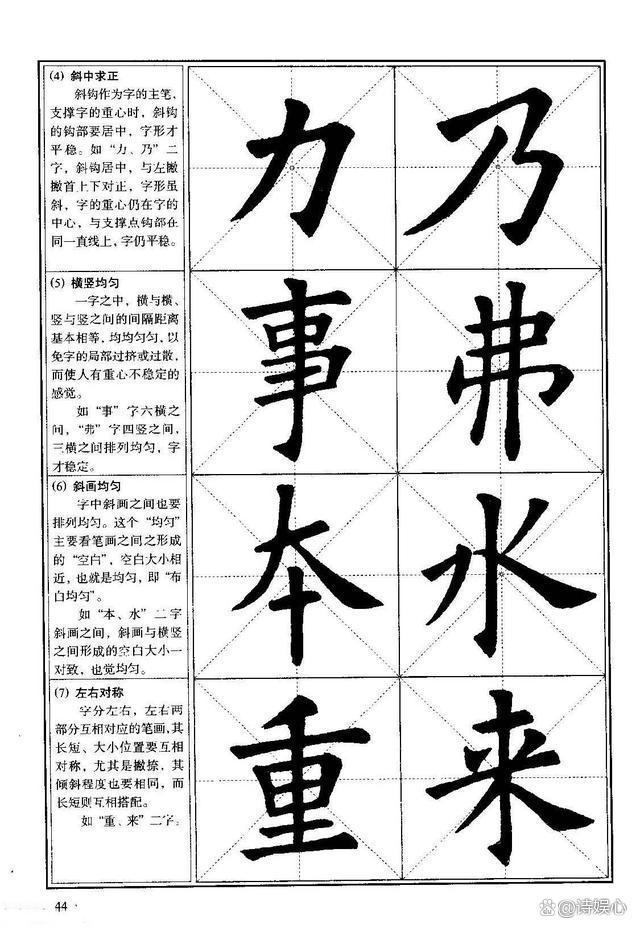 (4) 斜中求正
斜钩作为字的主笔,
支撑字的重心时，斜钩
的钩部要居中，字形才
平稳。如“力、乃”二
字，斜钩居中，与左撇
撇首上下对正，字形虽
斜，字的重心仍在字的
中心，与支撑点钩部在
同一直线上，字仍平稳。
力 乃
(5) 横竖均匀
一字之中，横与横、
竖与竖之间的间隔距离
基本相等，均均匀匀，以
免字的局部过挤或过散，
而使人有重心不稳定的
感觉。
如“事”字六横之
间，“弗”字四竖之间，
三横之间排列均匀，字
才稳定。
事 弗
(6) 斜画均匀
字中斜画之间也要
排列均匀。这个“均匀”
主要看笔画之间之形成
的“空白”，空白大小相
近，也就是均匀，即“布
白均匀”。
如“本、水”二字
斜画之间，斜画与横竖
之间形成的空白大小一
对致，也觉均匀。
本 水
(7) 左右对称
字分左右，左右两
部分互相对应的笔画，其
长短、大小位置要互相
对称，尤其是撇捺，其
倾斜程度也要相同，而
长短则互相搭配。
如“重、来”二字。
重 来
44
@诗娱心